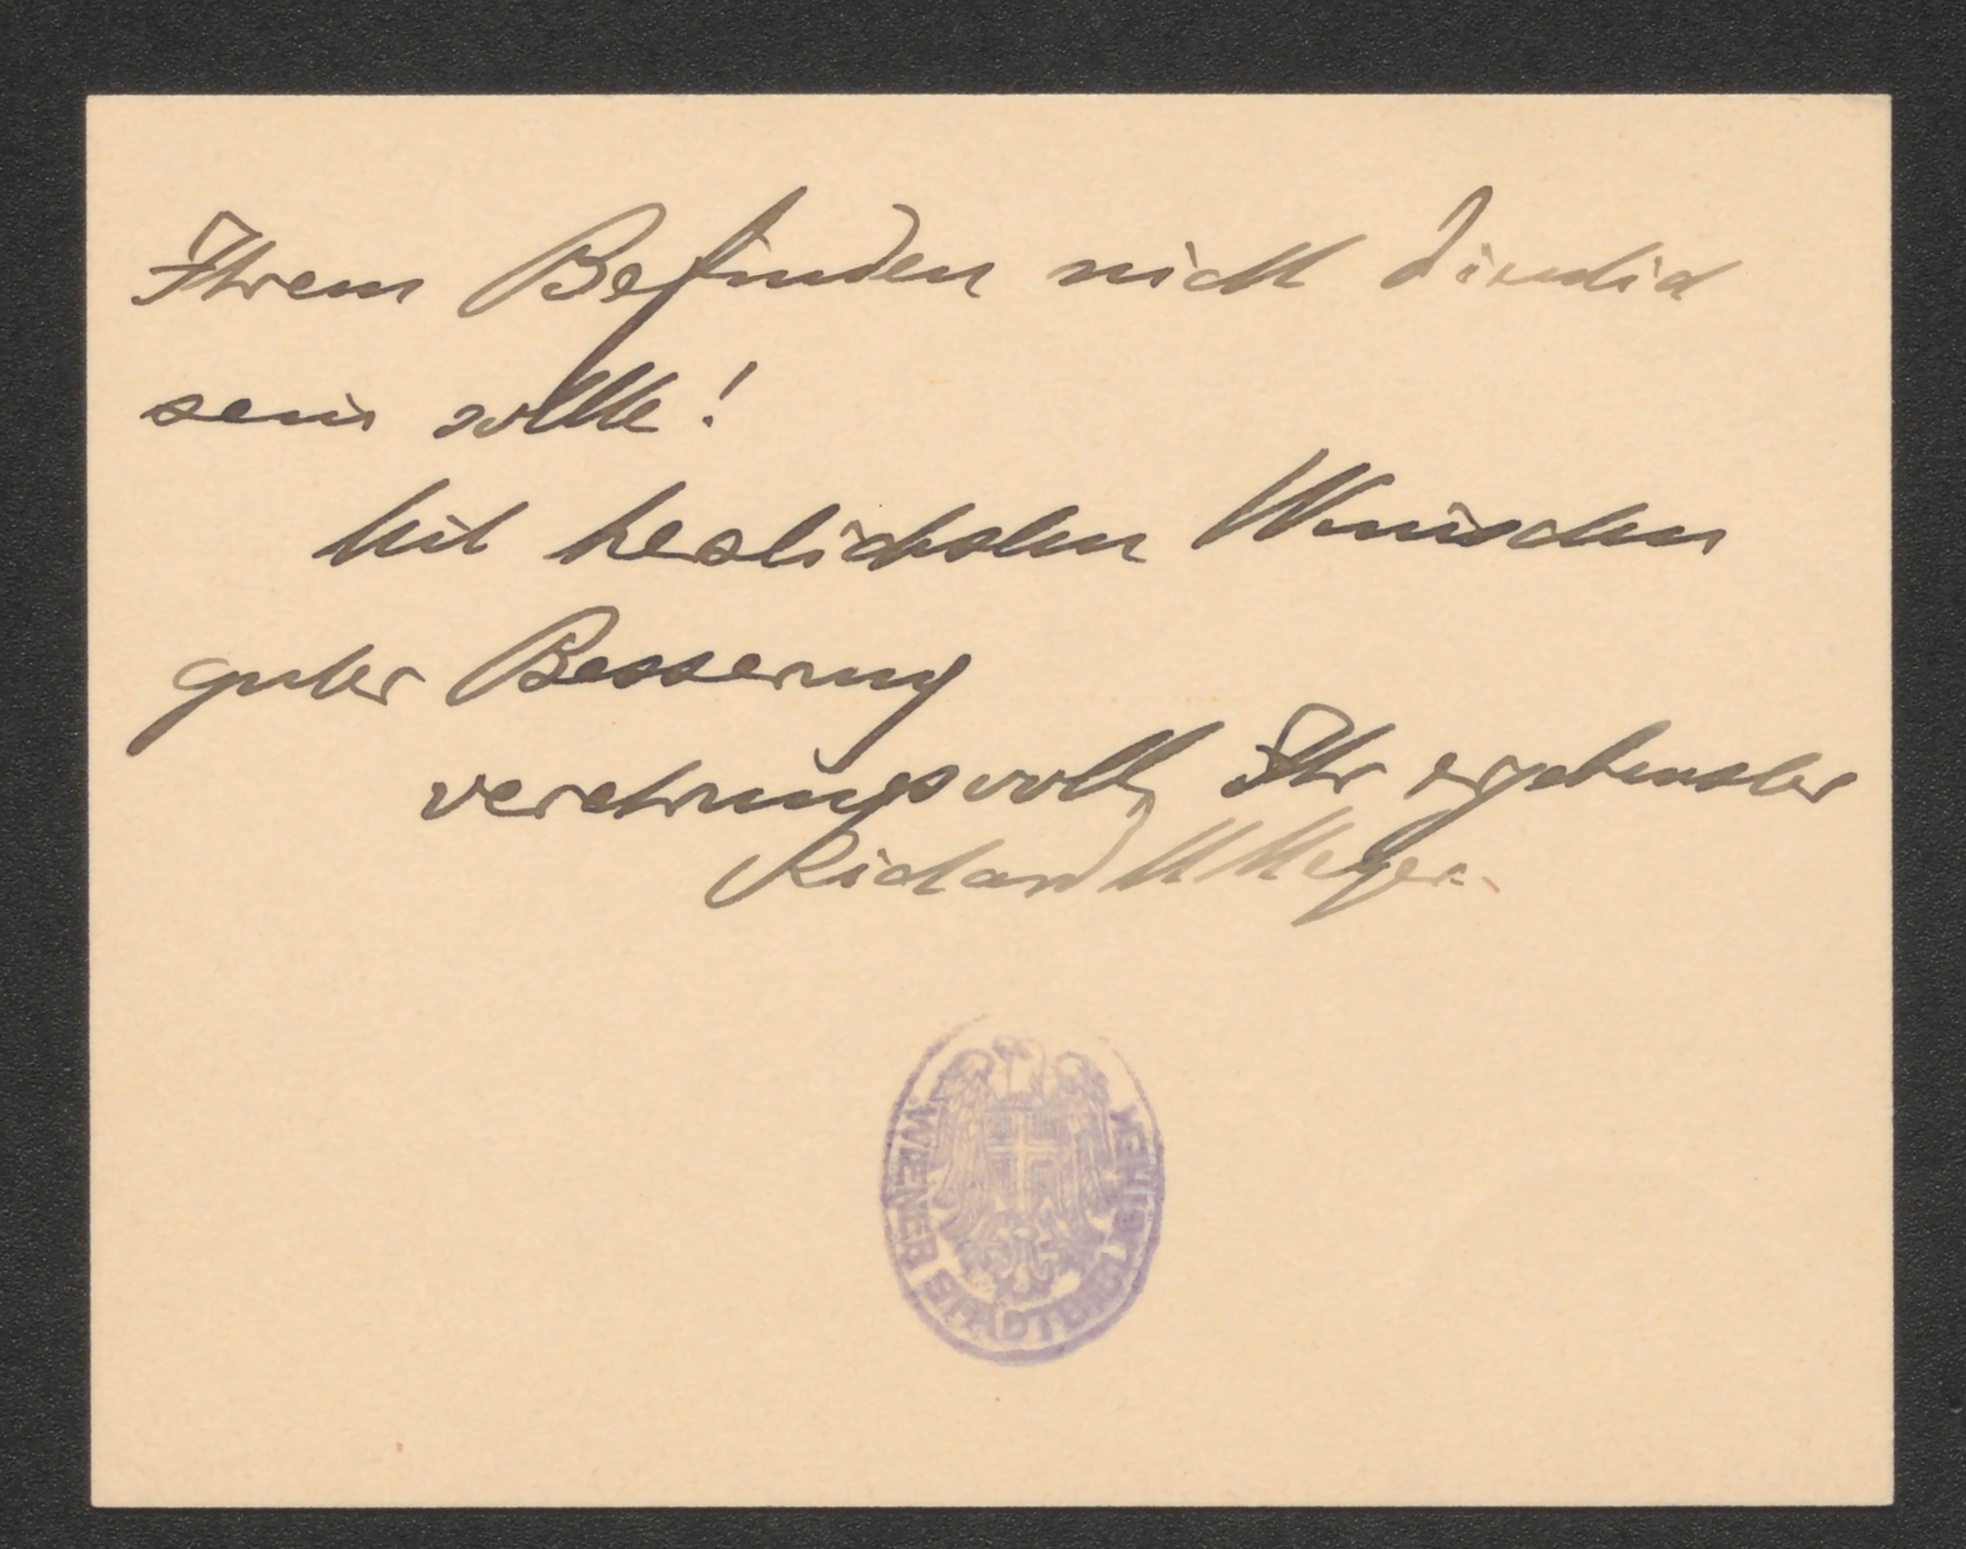 Ihrem Befinden nicht dienlich
sein sollte!
Mit herzlichsten Wünschen
guter Besserung
verehrungsvoll, Ihr ergebenster
Richard M Meyer.
WIENER STADTBIBLIOTHEK